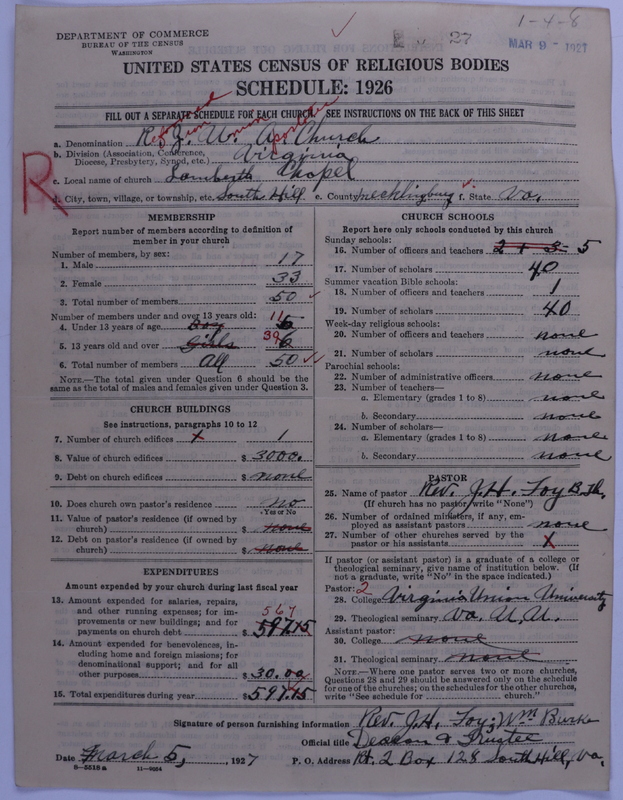 1-4-8
27
MAR 9 - 1927
DEPARTMENT OF COMMERCE
BUREAU OF THE CENSUS
WASHINGTON
UNITED STATES CENSUS OF RELIGIOUS BODIES
SCHEDULE: 1926
FILL OUT A SEPARATE SCHEDULE FOR EACH CHURCH. SEE INSTRUCTIONS ON THE BACK OF THIS SHEET
Reformed Zion Union Apostolic
a. Denomination R. Z. U. A. Church
b. Division (Association, Conference, Diocese, Presbytery, Synod, etc.) Virginia
R
c. Local name of church Lamberth Chapel
d. City, town, village, or township, etc. South Hill e. County Mecklingburg f. State Va.
MEMBERSHIP
Report number of members according to definition of
member in your church
Number of members, by sex:
1. Male 17
2. Female 33
3. Total number of members 50
Number of members under and over 13 years old:
4. Under 13 years of age Boy 5 11
5. 13 years old and over Girls 6 39
6. Total number of members All 50
NOTE.—The total given under Question 6 should be
same as the total of males and females given under Question 3.
CHURCH BUILDINGS
See instructions, paragraphs 10 to 12
7. Number of church edifices x 1
8. Value of church edifices $ 3000.
9. Debt on church edifices $ none
10. Does church own pastor's residence no
Yes or No
11. Value of pastor's residence (if owned by
church) $ none
12. Debt on pastor's residence (if owned by
church) $ none
EXPENDITURES
Amount expended by your church during last fiscal year
13. Amount expended for salaries, repairs,
and other running expenses; for im-
provements or new buildings; and for 567
payments on church debt $ 597.15
14. Amount expended for benevolences, in-
cluding home and foreign missions; for
denominational support; and for all
other purposes $ 30.00
15. Total expenditures during year $ 597.15
CHURCH SCHOOLS
Report here only schools conducted by this church
Sunday schools:
16. Number of officers and teachers 2 + 3 = 5
17. Number of scholars 40
Summer vacation Bible schools:
18. Number of officers and teachers 1
19. Number of scholars 40
Week-day religious schools:
20. Number of officers and teachers none
21. Number of scholars none
Parochial schools:
22. Number of administrative officers none
23. Number of teachers—
a. Elementary (grades 1 to 8) none
b. Secondary none
24. Number of scholars—
a. Elementary (grades 1 to 8) none
b. Secondary none
PASTOR
25. Name of pastor Rev. J. H. Toy B.Th.
(If church has no pastor write "None")
26. Number of ordained ministers, if any, em-
ployed as assistant pastors none
27. Number of other churches served by the
pastor or his assistants x
If pastor (or assistant pastor) is a graduate of a college or
theological seminary, give name of institution below. (If
not a graduate, write "No" in the space indicated.)
Pastor: 2
28. College Virginia Union University
29. Theological seminary Va. U. U.
Assistant pastor:
30. College none
31. Theological seminary none
NOTE.—Where one pastor serves two or more churches,
Questions 28 and 29 should be answered only on the schedule
for one of the churches; on the schedules for the other churches,
write "See schedule for church."
Signature of person furnishing information Rev. J. H. Toy; Wm Burke
Official title Deacon & Trustee
Date March 5, 1927 P. O. Address Rt. 2 Box 128 South Hill, Va.
8—5518 a 11—9024